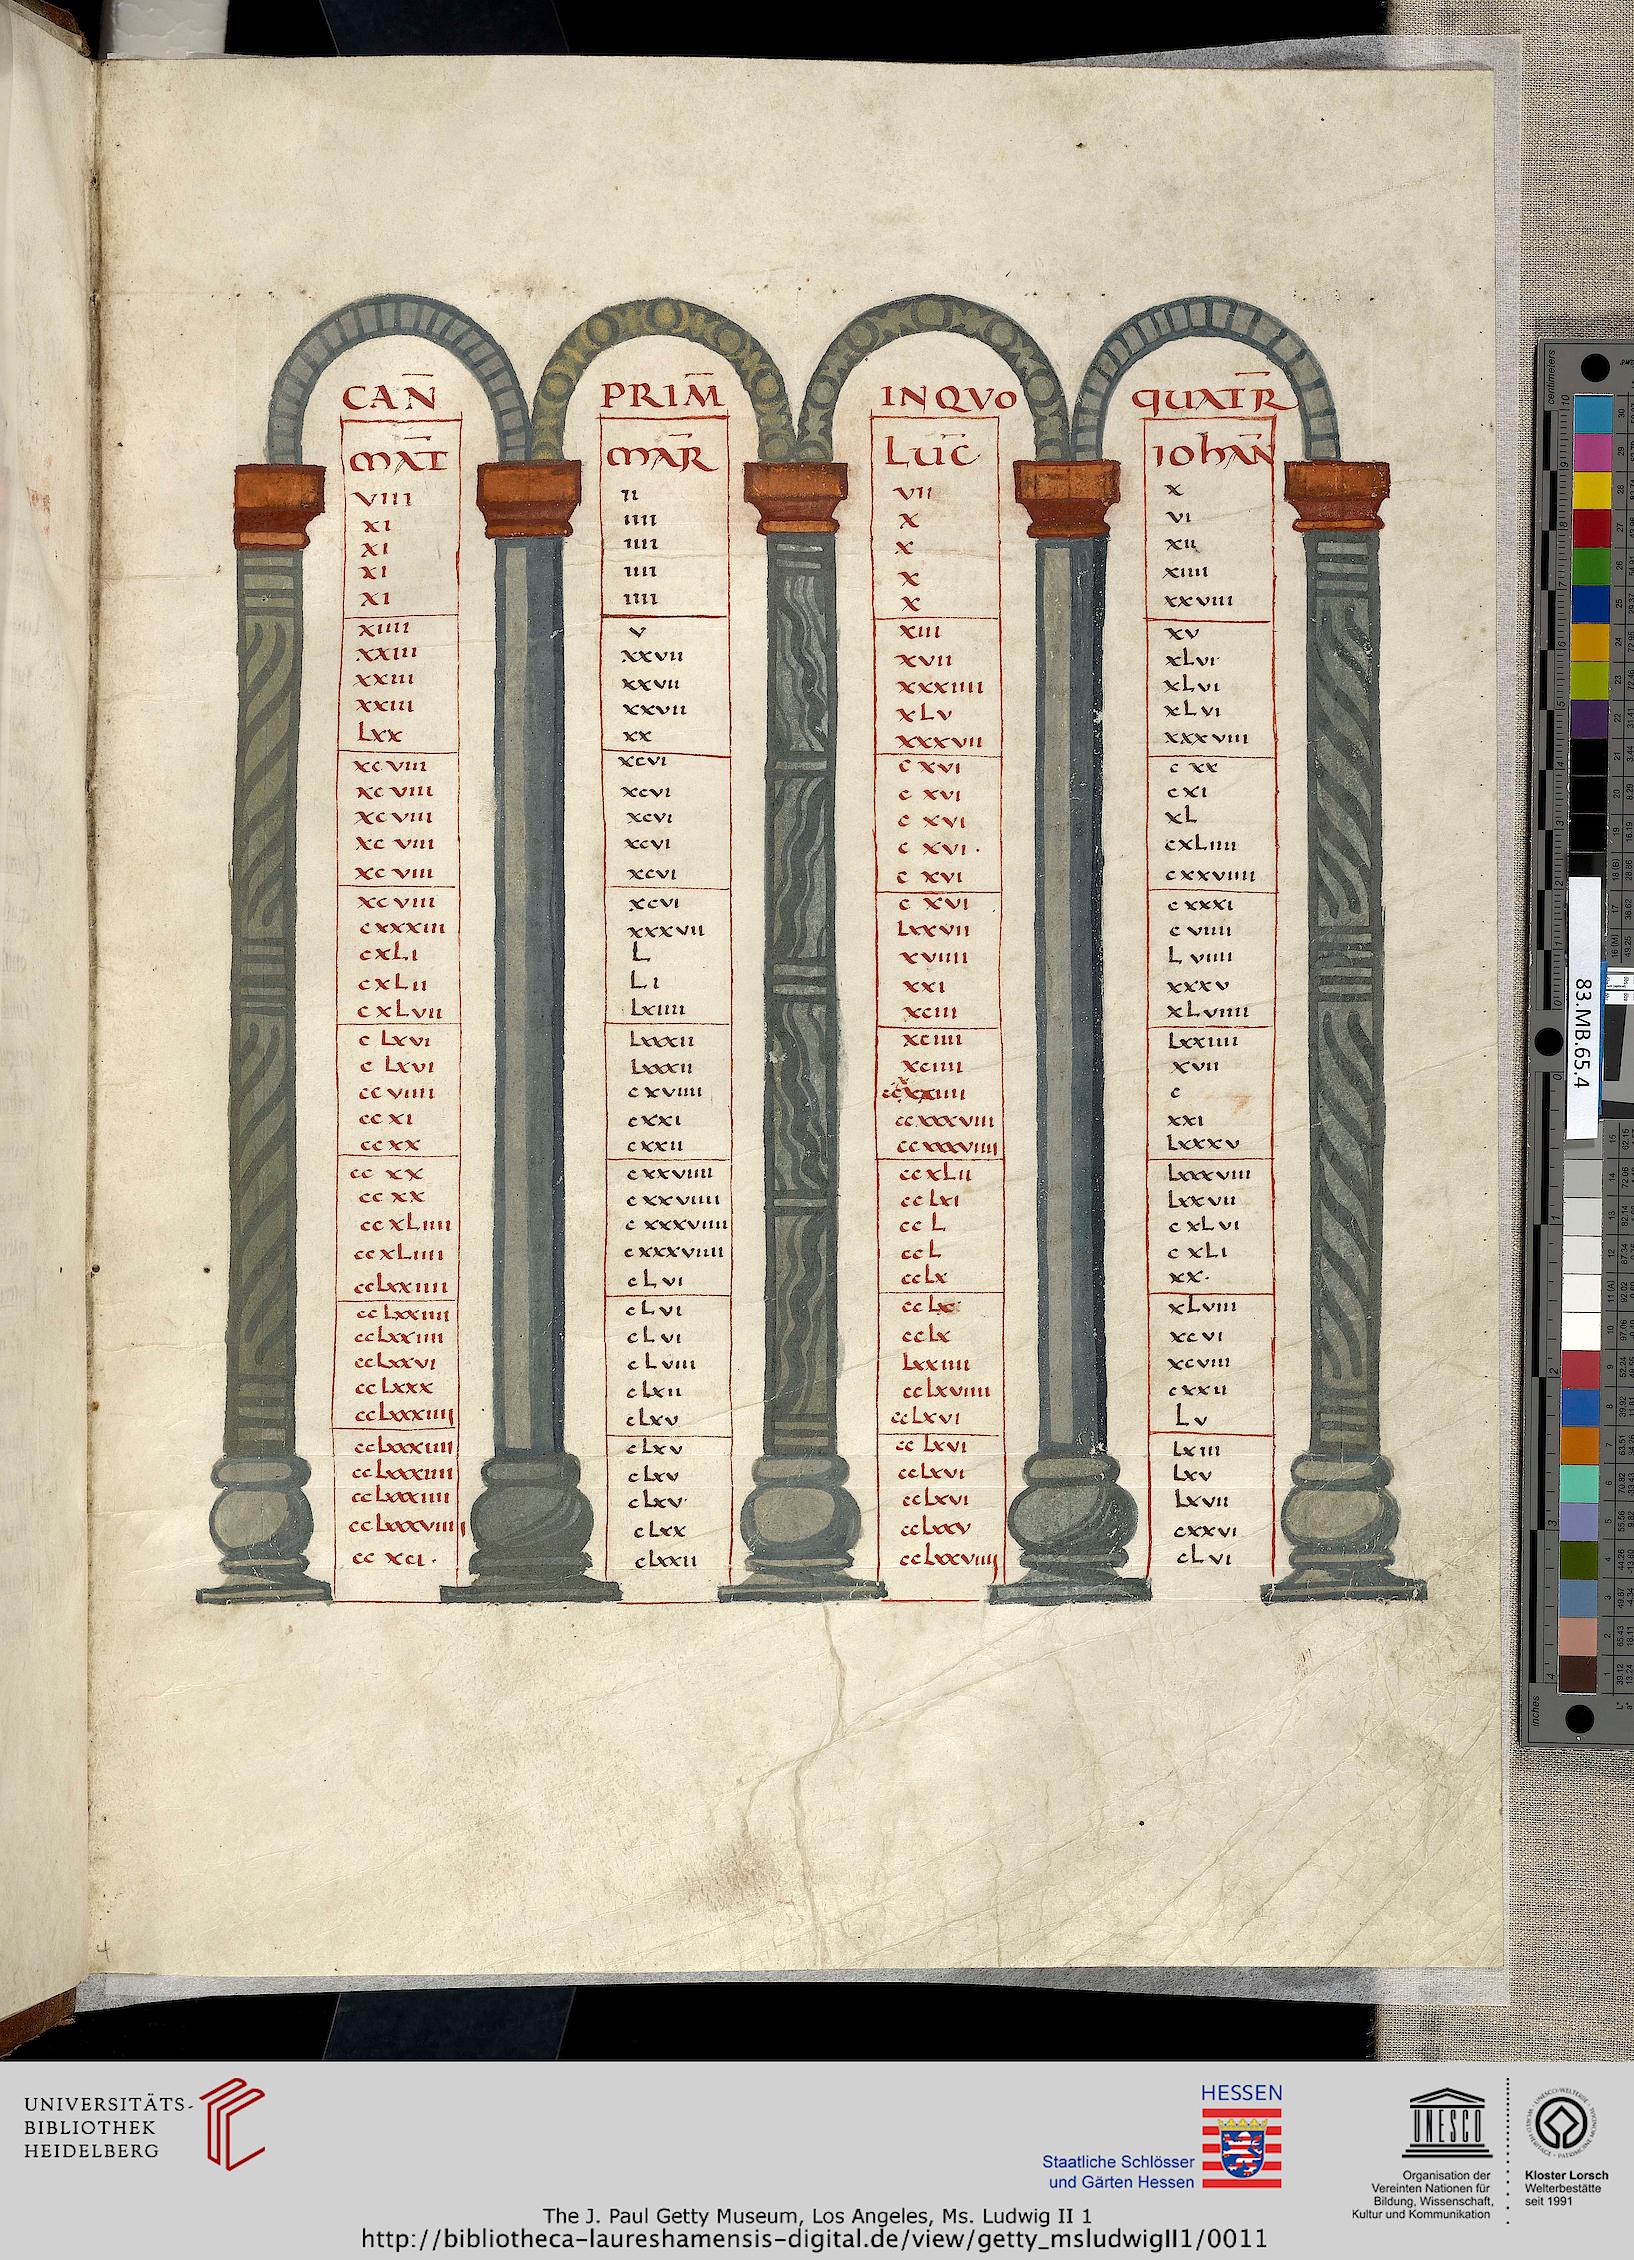 CAN̄ PRIM̄ INQVO QUATR̄
MAT̄ MAR̄ LUC̄ IOHAN̄
VIII II VII X
XI IIII X VI
XI IIII X XII
XI IIII X XIIII
XI IIII X XXVIII
XIIII V XIII XV
XXIII XXVII XVII XLVI
XXIII XXVII XXXIIII XLVI
XXIII XXVII XLV XLVI
LXX XX XXXVII XXXVIII
XCVIII XCVI CXVI CXX
XCVIII XCVI CXVI CXI
XCVIII XCVI CXVI XL
XCVIII XCVI CXVI CXLIIII
XCVIII XCVI CXVI CXXVIIII
XCVIII XCVI CXVI CXXXI
CXXXIII XXXVII LXXVII CVIIII
CXLI L XVIIII LVIIII
CXLII LI XXI XXXV
CXLVII LXIIII XCIII XLVIIII
CLXVI LXXXII XCIIII LXXIIII
CLXVI LXXXII XCIIII XVII
CCVIIII CXVIIII C
CCXI CXXI CCXXXVIII XXI
CCXX CXXII CCXXXVIIII LXXXV
CCXX CXXVIIII CCXLII LXXXVIII
CCXX CXXVIIII CCLXI LXXVII
CCXLIIII CXXXVIIII CCL CXLVI
CCXLIIII CXXXVIIII CCL CXLI
CCLXXIIII CLVI CCLX XX
CCLXXIIII CLVI CCLX XLVIII
CCLXXIIII CLVI CCLX XCVI
CCLXXVI CLVIII LXXIIII XCVIII
CCLXXX CLXII CCLXVIIII CXXII
CCLXXXIIII CLXV CCLXVI LV
CCLXXXIIII CLXV CCLXVI LXIII
CCLXXXIIII CLXV CCLXVI LXV
CCLXXXIIII CLXV CCLXVI LXVII
CCLXXXVIIII CLXX CCLXXV CXXVI
CCXCI CLXXII CCLXXVIIII CLVI
83.MB.65.4
centimeters
inches
UNIVERSITÄTS-
BIBLIOTHEK
HEIDELBERG
HESSEN
Staatliche Schlösser
und Gärten Hessen
UNESCO
Organisation der
Vereinten Nationen für
Bildung, Wissenschaft,
Kultur und Kommunikation
Kloster Lorsch
Welterbestätte
seit 1991
The J. Paul Getty Museum, Los Angeles, Ms. Ludwig II 1
http://bibliotheca-laureshamensis-digital.de/view/getty_msludwigII1/0011